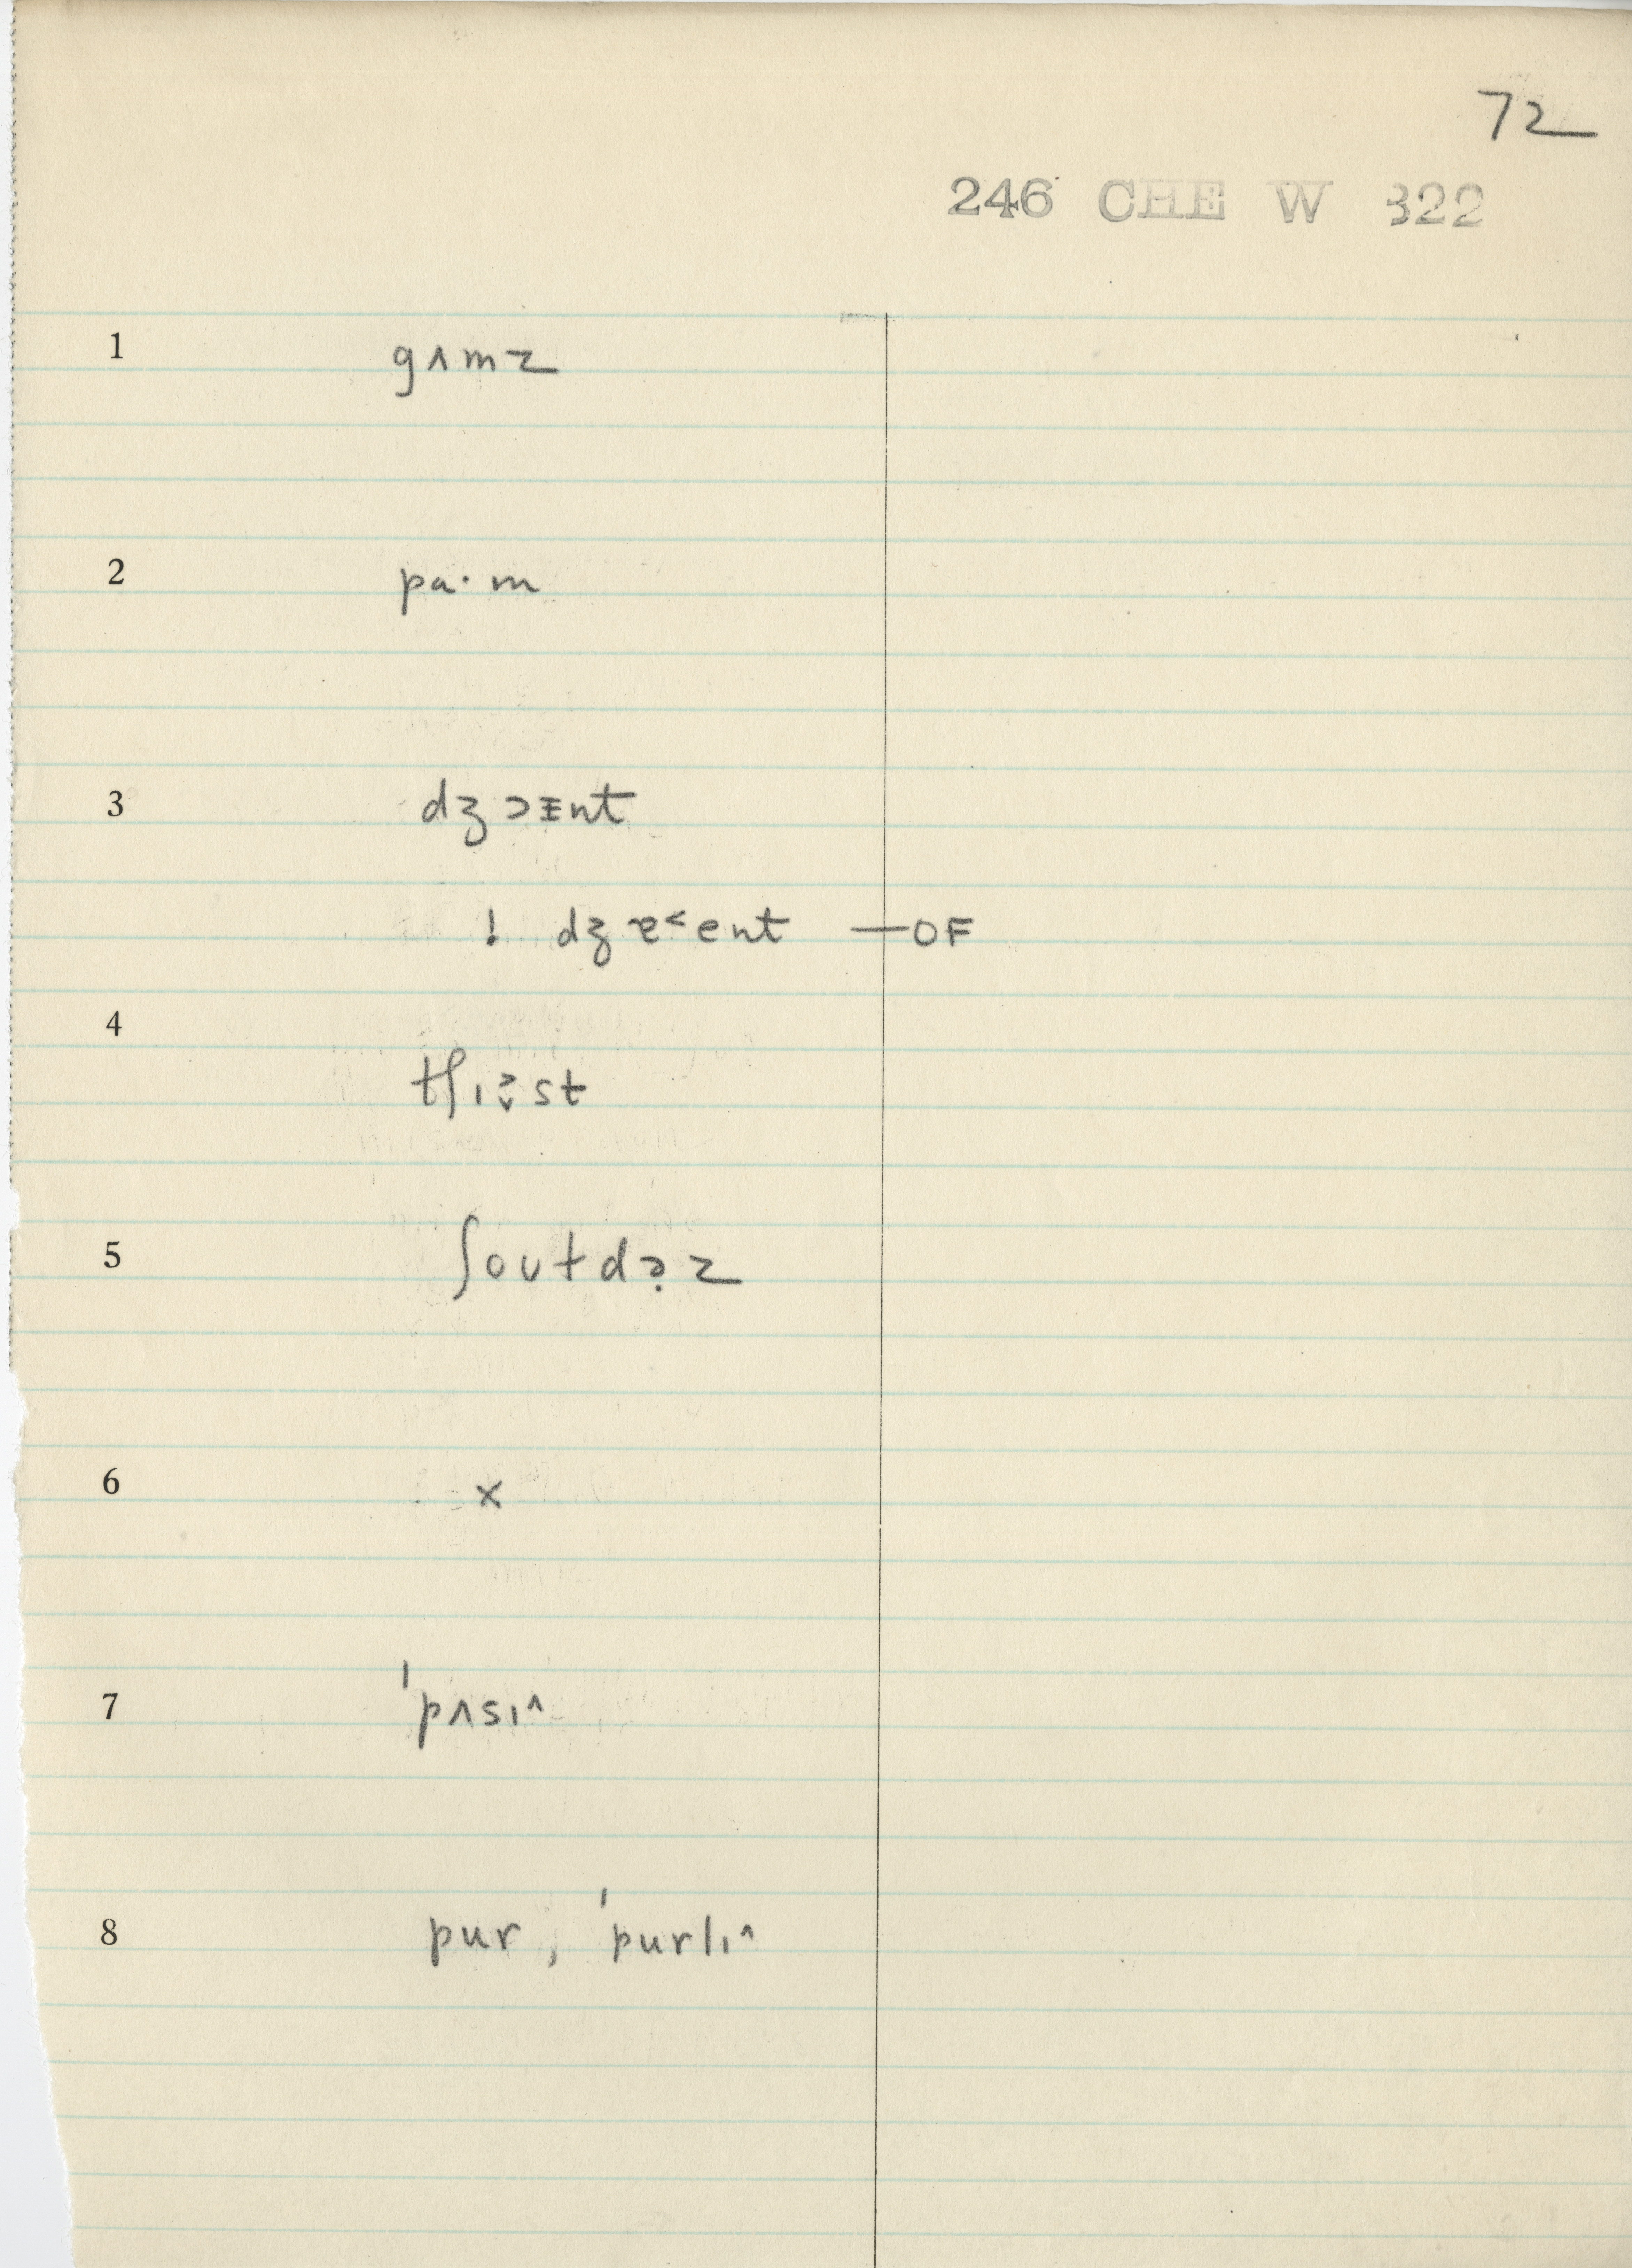 72
246 CHE W 322
1 gʌmz
2 pa·m
3 dʒɔɪnt
! dʒɐ˂ent —OF
4
5 ʃoʊtdə̣z
6 x
7 'pʌsɪ^
8 pur, 'purlɪ^